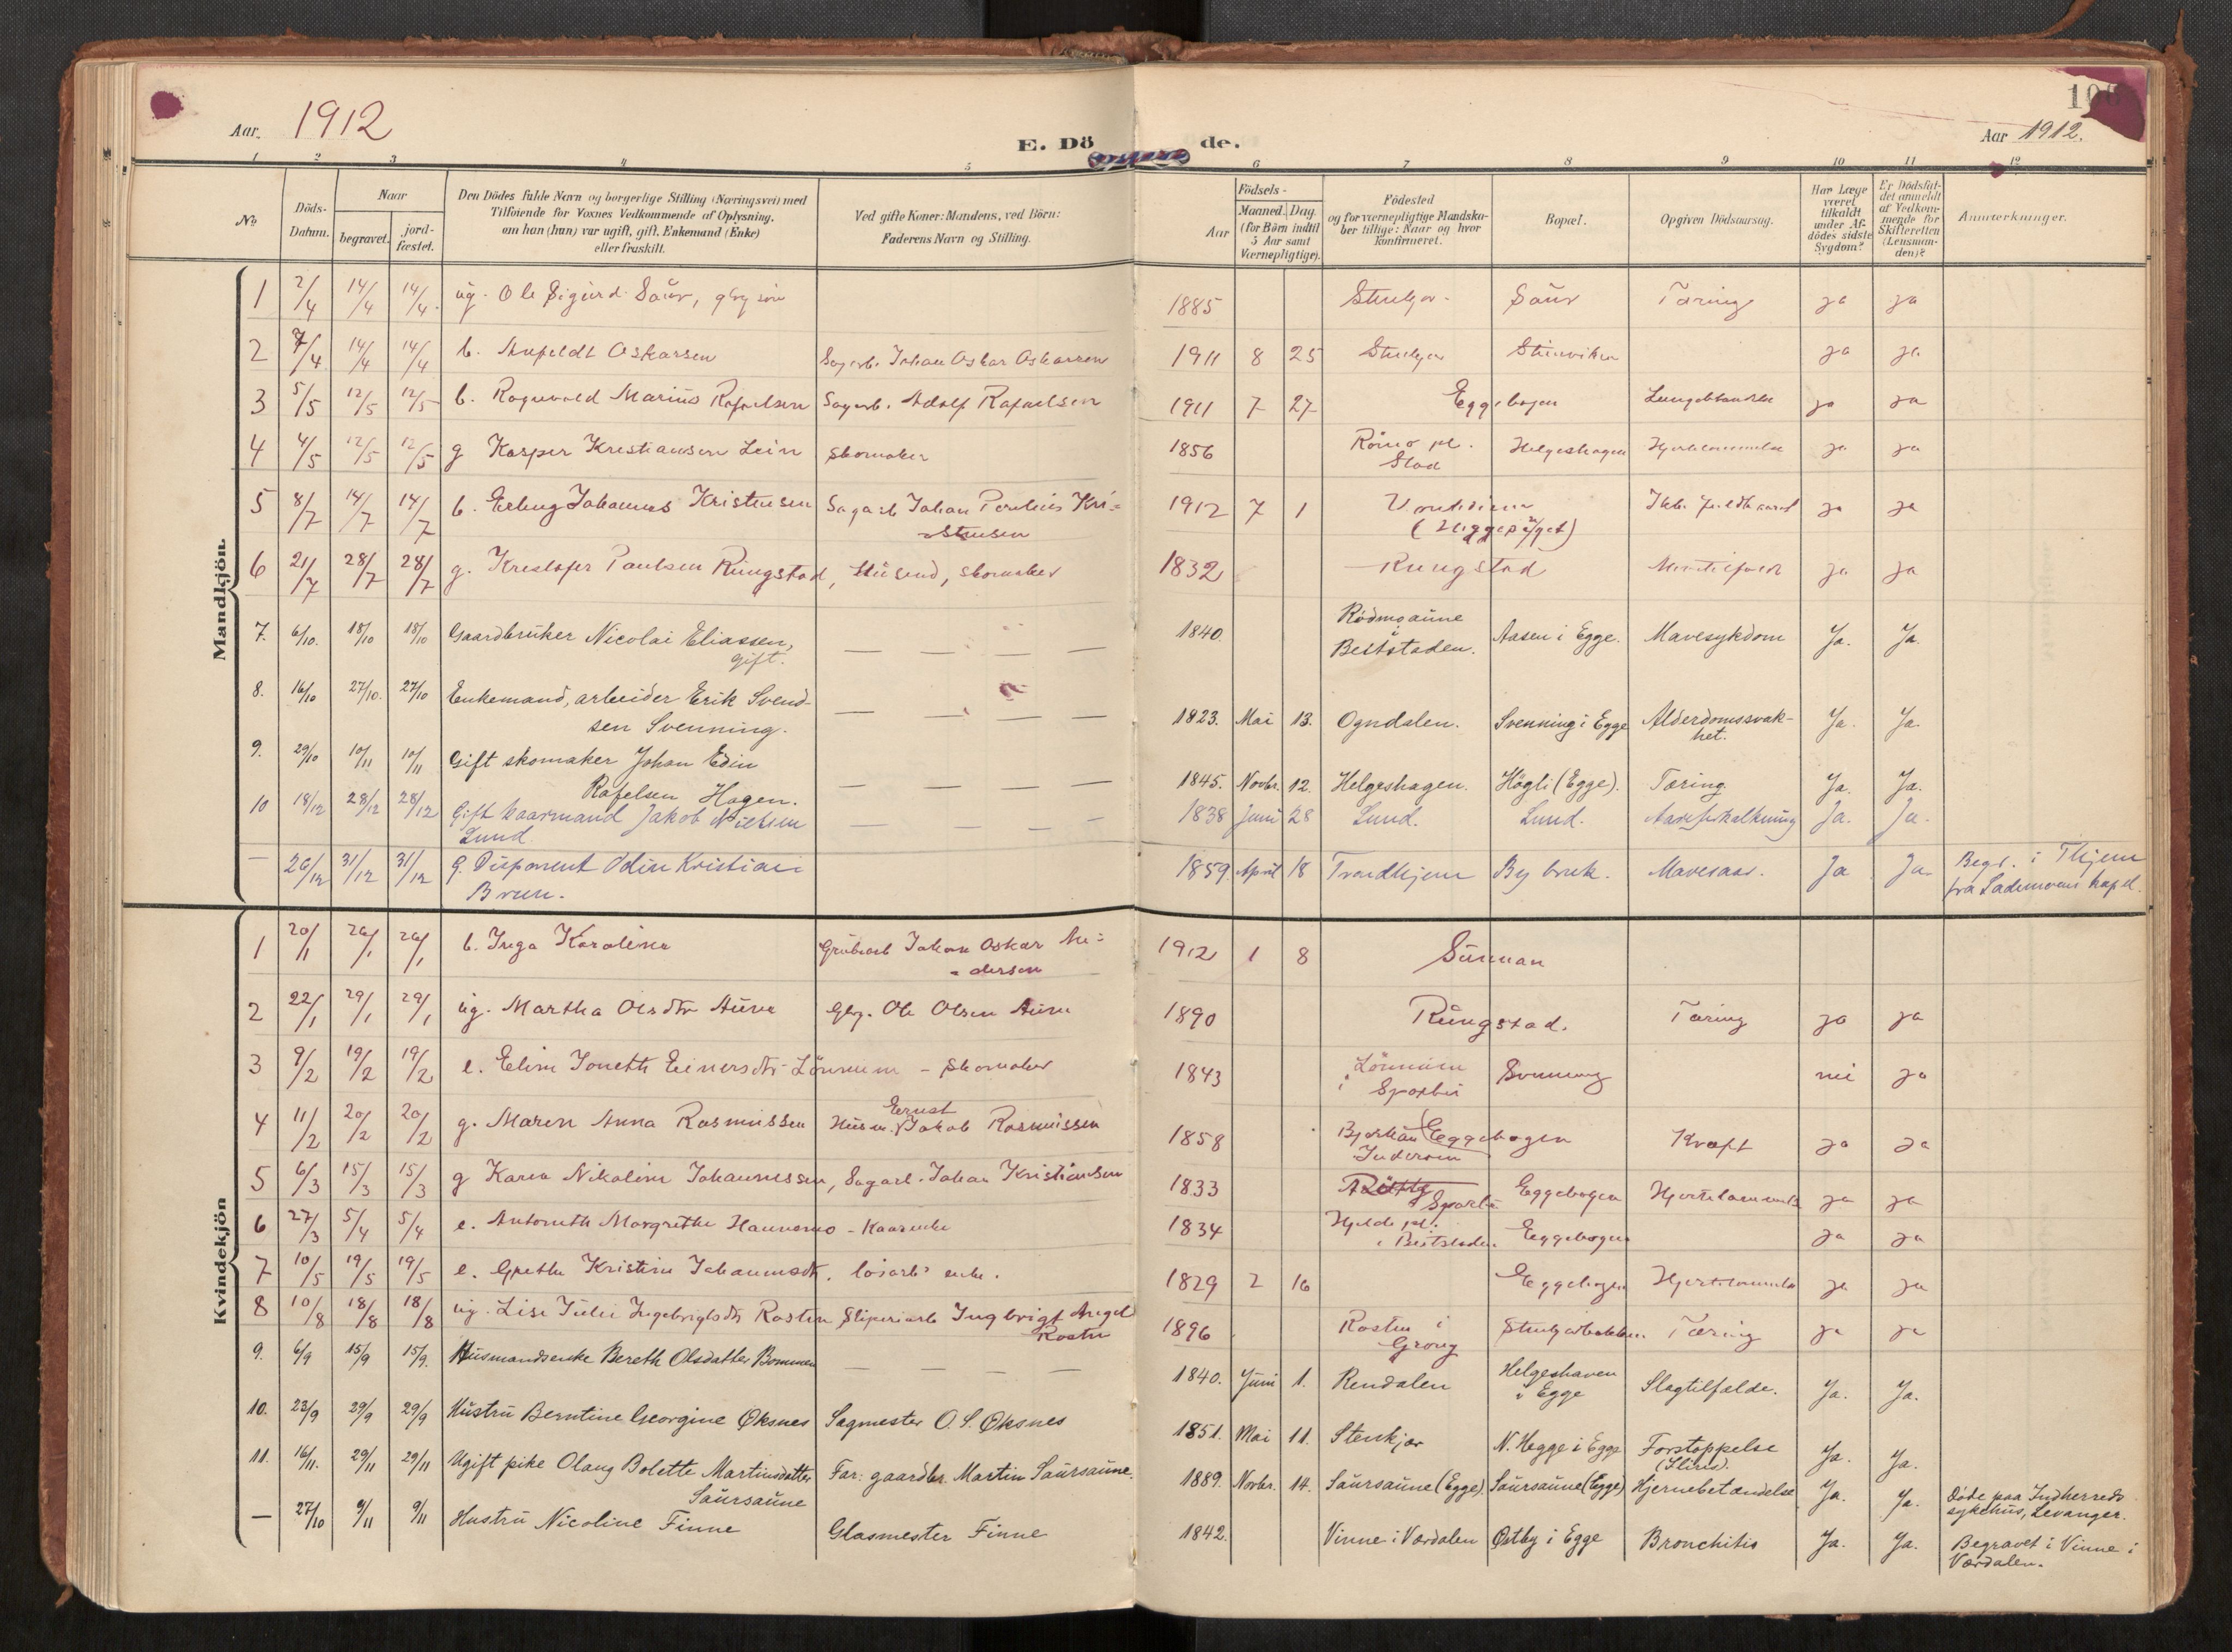 Aar. 1912
E. Dö de.
Aar 1912.
1 2 3 4 5 6 7 8 9 10 11 12
No
Döds-Datum.
Naar
begravet.
jord-fæstet.
Den Dödes fulde Navn og borgerlige Stilling (Næringsvei) med
Tilföiende for Voxnes Vedkommende af Oplysning,
om han (hun) var ugift, gift, Enkemand (Enke)
eller fraskilt.
Ved gifte Koner: Mandens, ved Börn:
Faderens Navn og Stilling.
Födsels-
Aar
Maaned. Dag.
(for Börn indtil
5 Aar samt
Værnepligtige).
Födested
og for værnepligtige Mandska-
ber tillige: Naar og hvor
konfirmeret.
Bopæl.
Opgiven Dödsaarsag.
Har Læge
været
tilkaldt
under Af-
dödes sidste
Sygdom?
Er Dödsfal-
det anmeldt
af Vedkom-
mende for
Skifteretten
(Lensman-
den)?
Anmærkninger.
Mandkjön.
1 2/4 14/4 14/4 ug. Ole Sigurd Saur, gbrg søn 1885 Saur Tæring ja ja
2 7/4 14/4 14/4 b. Oskarsen Sagarb. Johan Oskar Oskarsen 1911 8 25 ja ja
3 5/5 12/5 12/5 b. Ragnvald Marius Rafaelsen Sagarb. Adolf Rafaelsen 1911 7 27 Eggebogen ja ja
4 4/5 12/5 12/5 g Kasper Kristiansen Lein skomaker 1856 pl. Stod Helgeshagen ja ja
5 8/7 14/7 14/7 b. Erling Johannes Kristensen Sagarb Johan Kri=
stensen 1912 7 1 ja ja
6 21/7 28/7 28/7 g. Kristofer Paulsen Rungstad, Husmd, skomaker 1832 Rungstad ja ja
7. 6/10. 18/10 18/10 Gaardbruker Nicolai Eliassen,
gift. — — — — 1840. Rødmgaune
i Beitstaden. Aasen i Egge. Mavesykdom Ja. Ja
8. 16/10 27/10. 27/10 Enkemand, arbeider Erik Svend-
sen Svenning. — — — — 1823. Mai 13. Ogndalen. Svenning i Egge Alderdomssvak-
het. Ja. Ja.
9. 29/10 10/11 10/11 Gift skomaker Johan Edin
Rafelsen Hagen. — — — — 1845. Novbr. 12. Helgeshagen. Högli (Egge). Tæring. Ja. Ja.
10 18/12 28/12 28/12 Gift kaarmand Jakob Nielsen
Lund. — — — — 1838 Juni 28 Lund. Lund. Aareforkalkning Ja. Ja.
— 26/12 31/12 31/12 g. Disponent Odin Kristian
Brun. 1859. April 18 Trondhjem By bruk. Mavesaar. Ja Ja. Begr. i Thjem
fra Lademoens kapel.
Kvindekjön
1 20/1 26/1 26/1 b. Inga Karoline Grubearb Johan Oskar An=
dersen 1912 1 8 Sunnan
2 22/1 29/1 29/1 ug. Martha Olsdtr Aune Gbrg. Ole Olsen Aune 1890 Rungstad. Tæring ja ja
3 9/2 19/2 19/2 e. Elin Joneth Einersdtr Lønnum - skomaker 1843 Lønnum
i Sparbu Svenning nei ja
4 11/2 20/2 20/2 g. Maren Anna Rasmussen Husm. Ernst Jakob Rasmussen 1858 Inderøen Eggebogen Kræft ja ja
5 6/3 15/3 15/3 g Karen Nikoline Johannessen, Sagarb. Johan Kristiansen 1833 Sparbu Eggebogen Hjertelammelse ja ja
6 27/3 5/4 5/4 e. Antoneth Margrethe Hannemo - Kaarenke 1834 Hjelde pl.
i Beitstaden. Eggebogen ja ja
7 10/5 19/5 19/5 e. Grethe Kristine Johannsdtr. løsarbs enke. 1829 2 16 Eggebogen Hjertelammelse ja ja
8 10/8 18/8 18/8 ug. Lise Julie Ingebrigtsdtr Rosten Sliperiarb Ingbrigt Angel
Rosten 1896 Rosten i
Grong Tæring ja ja
9. 6/9 15/9 15/9. Husmandsenke Bereth Olsdatter Bommen — — — 1840. Juni 1. Rendalen Helgeshaven
i Egge Slagtilfælde. Ja. Ja.
10. 23/9 29/9 29/9 Hustru Berntine Georgine Øksnes Sagmester O. S. Øksnes 1851. Mai 11. Stenkjær N. Hegge i Egge Forstoppelse
Ja. Ja.
11. 16/11. 29/11 29/11 Ugift pike Olaug Bolette Martinsdatter
Saursaune Far: gaardbr. Martin Saursaune. 1889. Novbr. 14. Saursaune (Egge). Saursaune (Egge) Hjernebetændelse Ja. Ja. Døde paa Indherreds
sykehus, Levanger.
— 27/10 9/11 9/11 Hustru Nicoline Finne Glasmester Finne 1842. Vinne i Værdalen Østby i Egge Bronchitis Ja. Ja. Begravet i Vinne i
Værdalen.